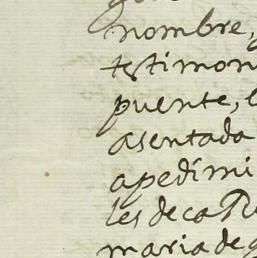 nombre,
testimon
puente, e
asentada
apedimi
les de ca
maria de g